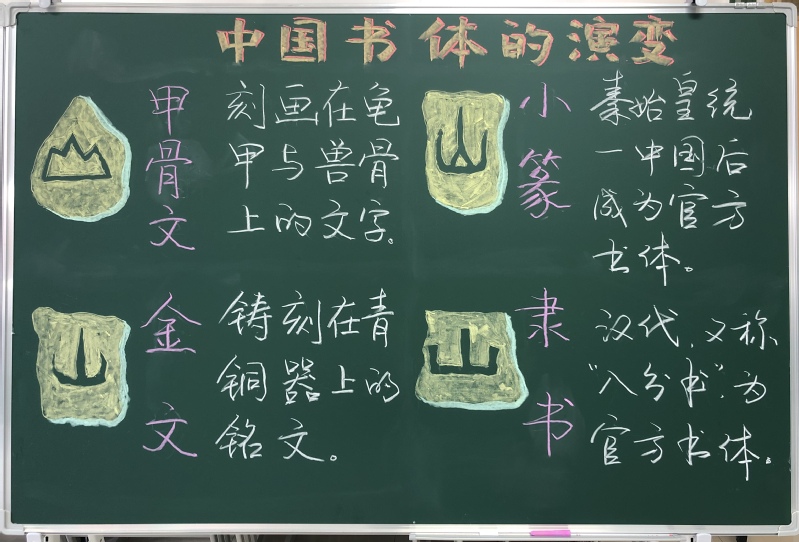 中国书体的演变
甲骨文
刻画在龟
甲与兽骨
上的文字。
金文
铸刻在青
铜器上的
铭文。
小篆
秦始皇统
一中国后
成为官方
书体。
隶书
汉代,又称
“八分书”,为
官方书体。